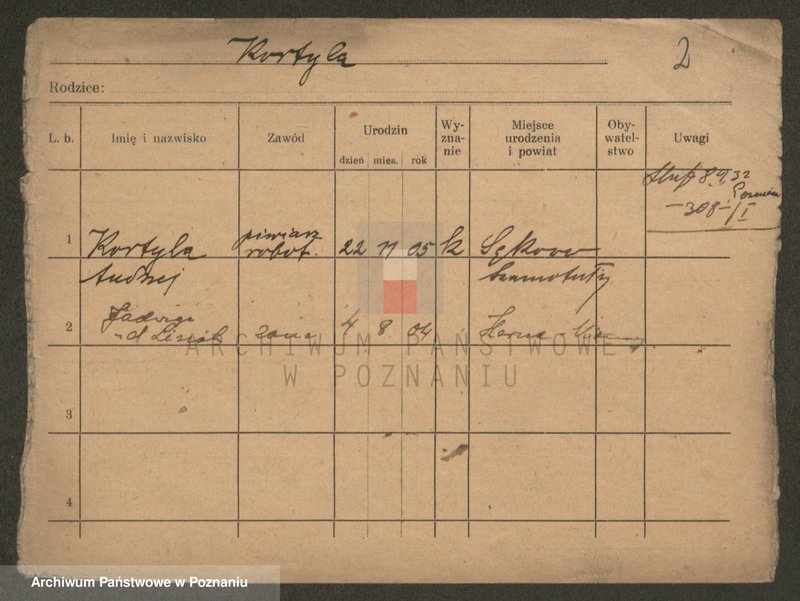 Kortyla
2
Rodzice:
L. b. Imię i nazwisko Zawód Urodzin Wy-zna-nie Miejsce urodzenia i powiat Oby-watel-stwo Uwagi
dzień mies. rok
8.9.32
-308-/I
1 Kortyla robot. 22 11 05 k Sękowo
Andrzej Szamotuły
Jadwiga
2 żona 4 8 04 Herne
ARCHIWUM PAŃSTWOWE
W POZNANIU
3
4
Archiwum Państwowe w Poznaniu